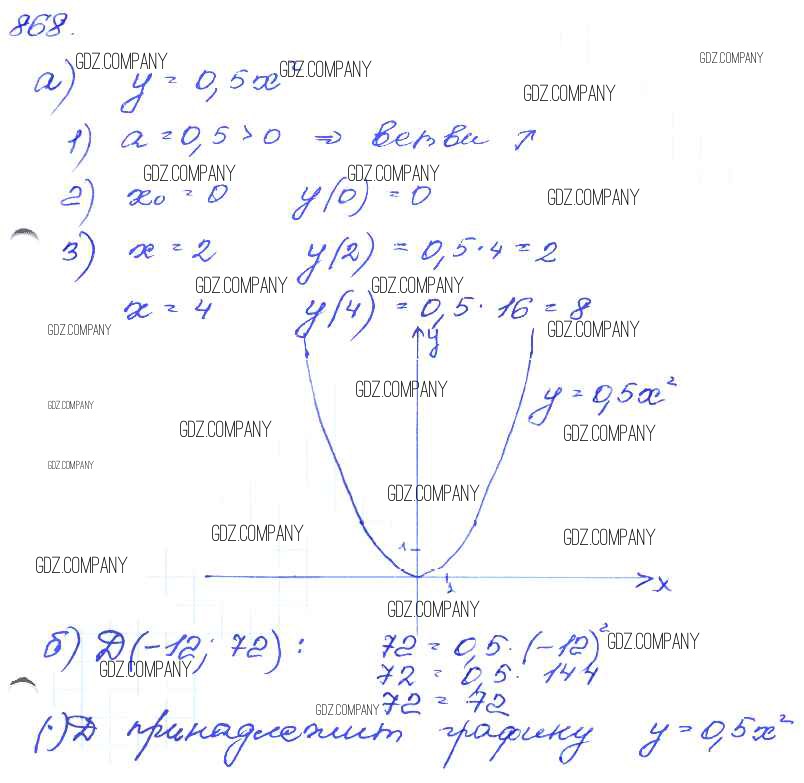 868.
GDZ.COMPANY GDZ.COMPANY GDZ.COMPANY
а) y = 0,5x² GDZ.COMPANY
1) a = 0,5 > 0 ⇒ ветви ↑
GDZ.COMPANY GDZ.COMPANY GDZ.COMPANY
2) x₀ = 0 y(0) = 0
3) x = 2 y(2) = 0,5·4 = 2
GDZ.COMPANY GDZ.COMPANY
x = 4 y(4) = 0,5·16 = 8
GDZ.COMPANY y GDZ.COMPANY
GDZ.COMPANY GDZ.COMPANY y = 0,5x²
GDZ.COMPANY GDZ.COMPANY
GDZ.COMPANY GDZ.COMPANY
GDZ.COMPANY 1 GDZ.COMPANY
GDZ.COMPANY 1 x
GDZ.COMPANY
б) D(-12; 72): 72 = 0,5·(-12)² GDZ.COMPANY
GDZ.COMPANY 72 = 0,5· 144
GDZ.COMPANY 72 = 72
(·)D принадлежит графику y = 0,5x²